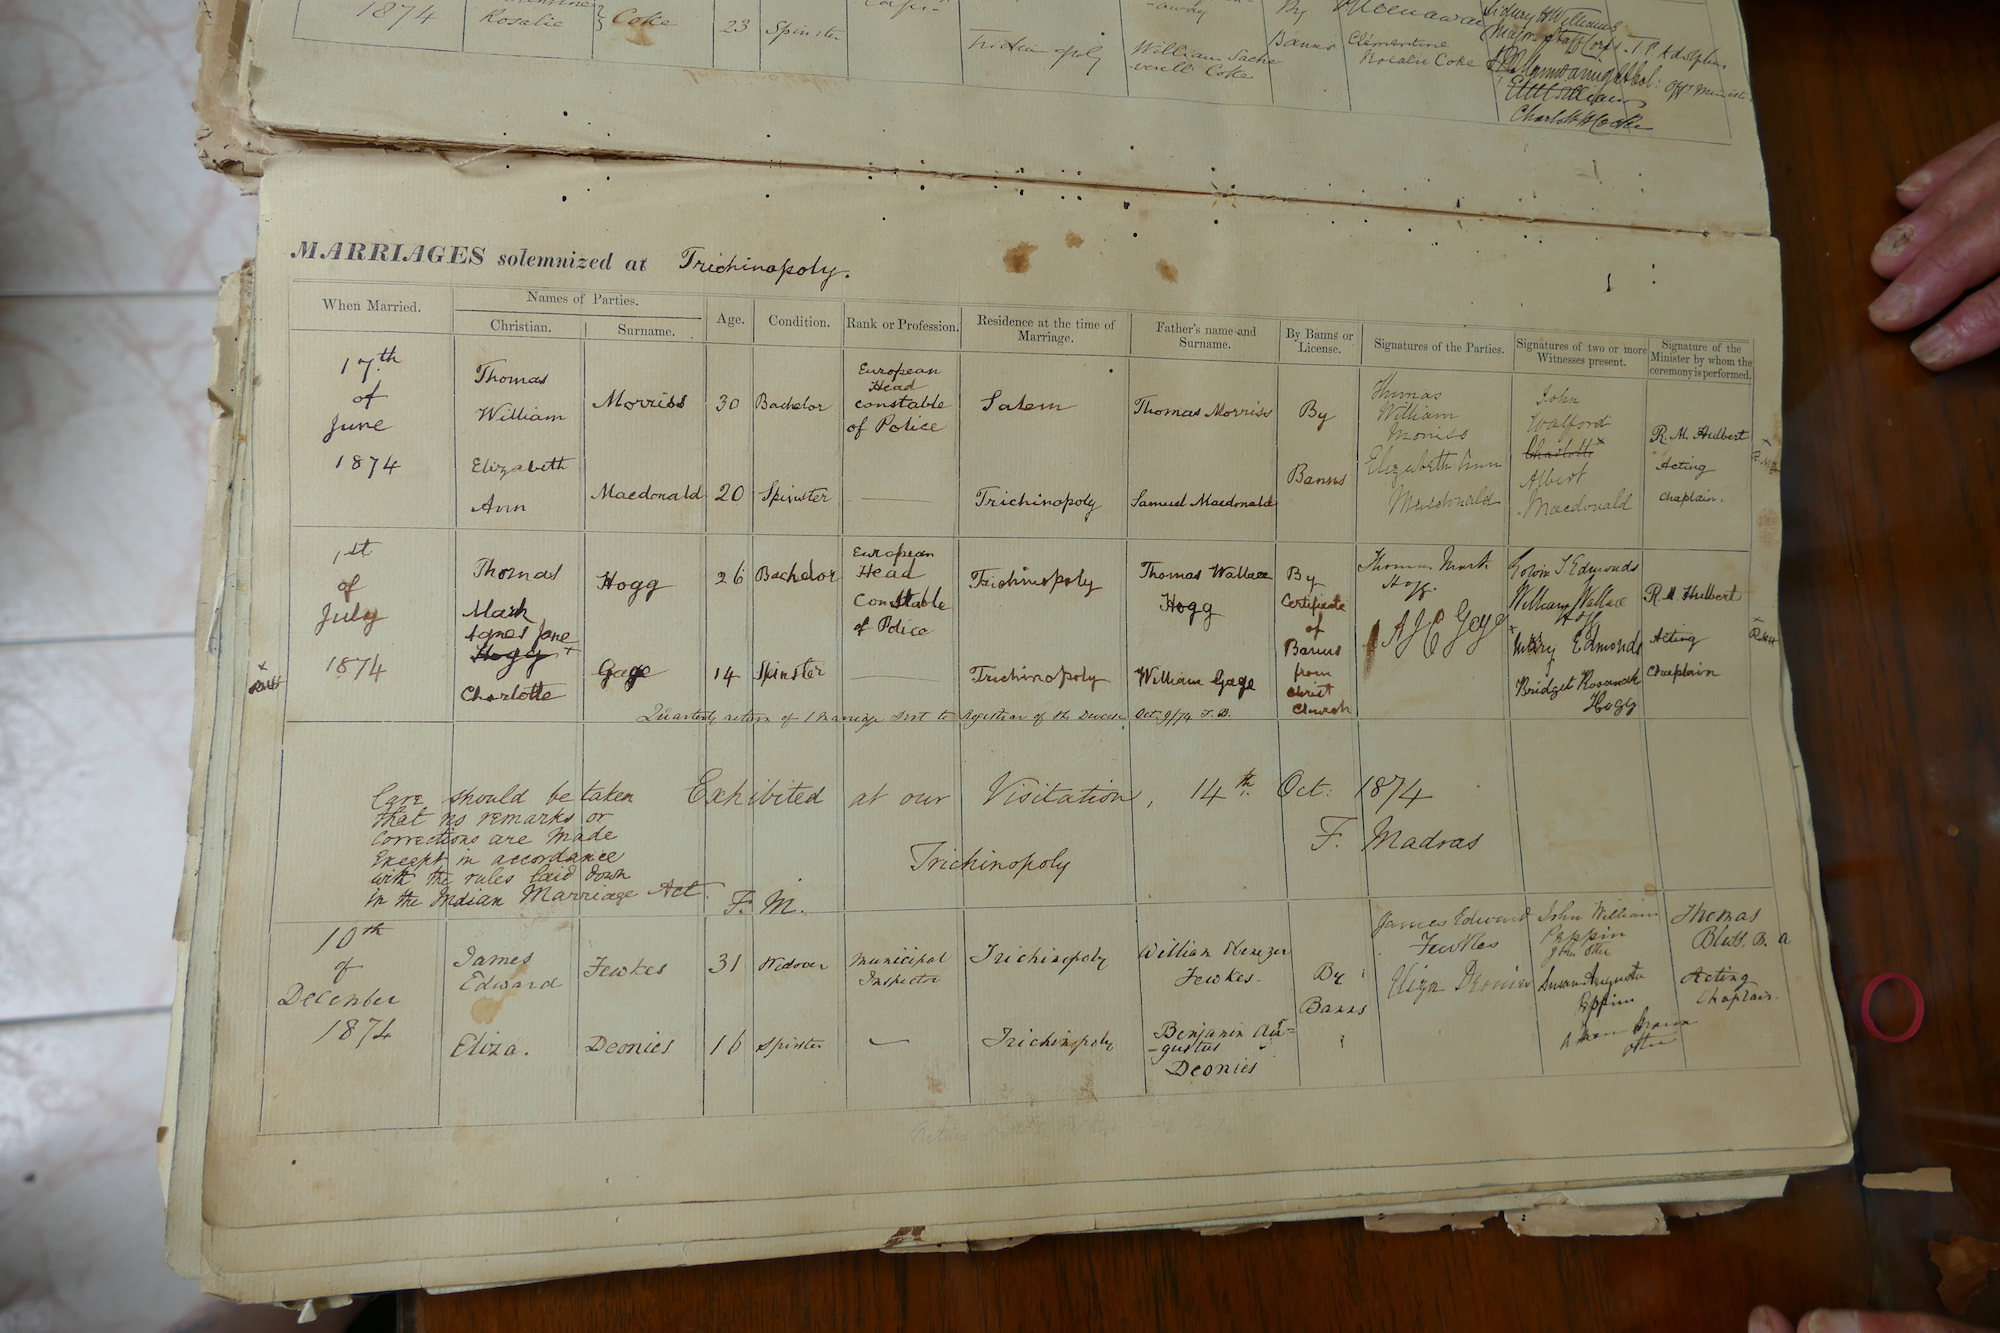 1874 Rosalie } Coke 23 Spinster Trichinopoly William Sache- Banns Clementine
-verell Coke Rosalie Coke
Charlotte H Cocke
MARRIAGES solemnized at Trichinopoly.
When Married. Names of Parties. Age. Condition. Rank or Profession. Residence at the time of Marriage. Father's name and Surname. By Banns or License. Signatures of the Parties. Signatures of two or more Witnesses present. Signature of the Minister by whom the ceremony is performed.
Christian. Surname.
17th of June 1874
Thomas William Morriss 30 Bachelor European Head constable of Police Salem Thomas Morriss By
Elizabeth Ann Macdonald 20 Spinster — Trichinopoly Samuel Macdonald Banns
Thomas William Morriss
Elizabeth Ann Macdonald
John Walford
Charlotte x
Albert Macdonald
R. M. Hulbert
Acting
Chaplain.
1st of July 1874
Thomas Mark Hogg 26 Bachelor European Head Constable of Police Trichinopoly Thomas Wallace Hogg
Agnes Jane
Hogg x
Charlotte Gage 14 Spinster — Trichinopoly William Gage
By Certificate of Banns from Christ Church
Thomas Mark Hogg.
A J C Gage
Edwin T. Edmonds
William Wallace Hogg
x Mary Edmonds
Bridget Rosannah Hogg
R. M. Hulbert
Acting
Chaplain
x
RMH
Quarterly return of 1 marriage sent to Registrar of the Diocese Oct. 9/74 T. B.
Care should be taken
that no remarks or
corrections are made
Except in accordance
with the rules laid down
in the Indian Marriage Act.
F. M.
Exhibited at our Visitation, 14th Oct: 1874
F. Madras
Trichinopoly
10th of December 1874
James Edward Fewkes 31 Widower Municipal Inspector Trichinopoly William Ebenezer Fewkes.
Eliza. Deonies 16 Spinster — Trichinopoly Benjamin Au=
-gustus
Deonies
By Banns
James Edward Fewkes
Eliza Deonies
John William Peppin
Susan Augusta Peppin
Thomas
B. A
Acting
Chaplain.